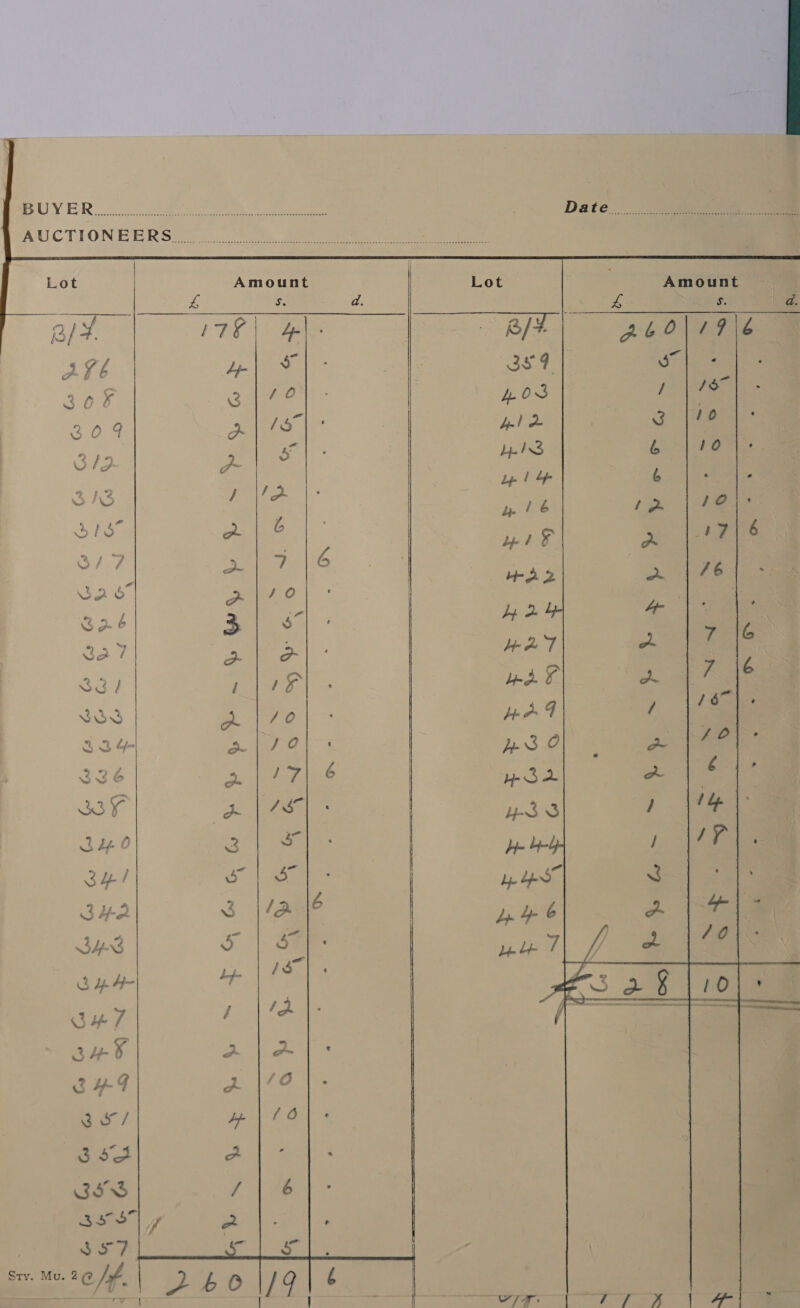 BUYER
Date
AUCTIONEERS
Lot Amount
£ s. d.
B/F. 178 4 .
286 4 5 .
308 3 10 .
309 2 15 .
312 2 5 .
313 1 12 .
315 2 6 .
317 2 7 6
325 2 10 .
326 3 5 .
327 2 2 .
331 1 18 .
333 2 10 .
334 2 10 .
336 2 17 6
338 2 15 .
340 3 5 .
341 5 5 .
342 3 12 6
343 5 5 .
344 4 15 .
347 1 12 .
348 2 2 .
349 2 10 .
351 4 10 .
352 2 . .
353 1 6 .
355 2 . .
357 5 5 .
Sty. Mu. 2 c/f. 260 19 6
Lot Amount
£ s. d.
B/F 260 19 6
359 5 . .
403 1 15 .
412 3 10 .
413 6 10 .
414 6 . .
416 12 10 .
418 2 17 6
422 2 16 .
424 4 . .
427 2 7 6
428 2 7 6
429 1 15 .
430 2 10 .
432 2 6 .
433 1 14 .
444 1 18 .
445 3 . .
446 2 4 .
447 2 10 .
£328 10 .